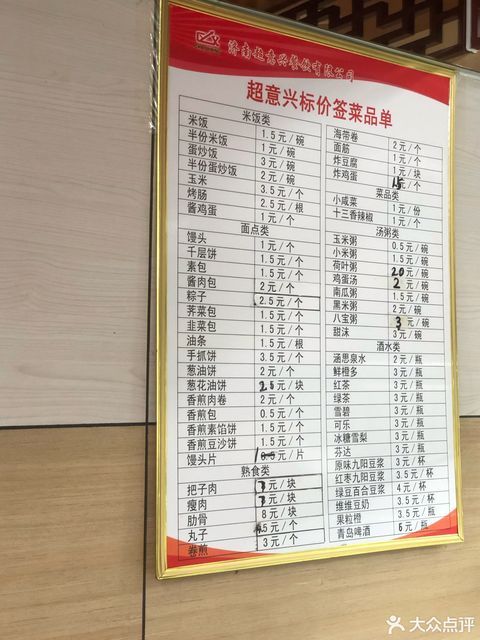 济南超意兴餐饮有限公司
超意兴标价签菜品单
米饭类
米饭 1.5元/碗
半份米饭 1元/碗
蛋炒饭 3元/碗
半份蛋炒饭 2元/碗
玉米 3.5元/个
烤肠 2.5元/根
酱鸡蛋 1元/个
面点类
馒头 1元/个
千层饼 1.5元/个
素包 1.5元/个
酱肉包 2元/个
粽子 2.5元/个
荠菜包 1.5元/个
韭菜包 1.5元/个
油条 1.5元/根
手抓饼 3.5元/个
葱油饼 2元/个
葱花油饼 2.5元/块
香煎肉卷 2元/个
香煎包 0.5元/个
香煎素馅饼 1.5元/个
香煎豆沙饼 1.5元/个
馒头片 元/片
熟食类
把子肉 元/块
瘦肉 元/块
肋骨 8元/块
丸子 元/个
卷煎 3元/个
海带卷 2元/个
面筋 1元/个
炸豆腐 1元/块
炸鸡蛋 元/个
菜品类
小咸菜 1元/份
十三香辣椒 1元/个
汤粥类
玉米粥 0.5元/碗
小米粥 1.5元/碗
荷叶粥 元/碗
鸡蛋汤 2元/碗
南瓜粥 1.5元/碗
黑米粥 2元/碗
八宝粥 3元/碗
甜沫 3元/碗
酒水类
涵思泉水 2元/瓶
鲜橙多 3元/瓶
红茶 3元/瓶
绿茶 3元/瓶
雪碧 3元/瓶
可乐 3元/瓶
冰糖雪梨 3元/瓶
芬达 3元/瓶
原味九阳豆浆 3元/杯
红枣九阳豆浆 3.5元/杯
绿豆百合豆浆 4元/杯
维维豆奶 3.5元/杯
果粒橙 3.5元/瓶
青岛啤酒 6元/瓶
大众点评